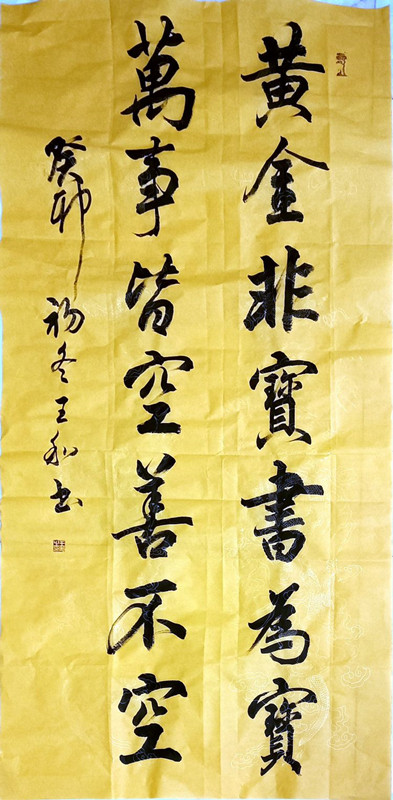 黃金非寶書為寶
萬事皆空善不空
癸卯初冬王和書